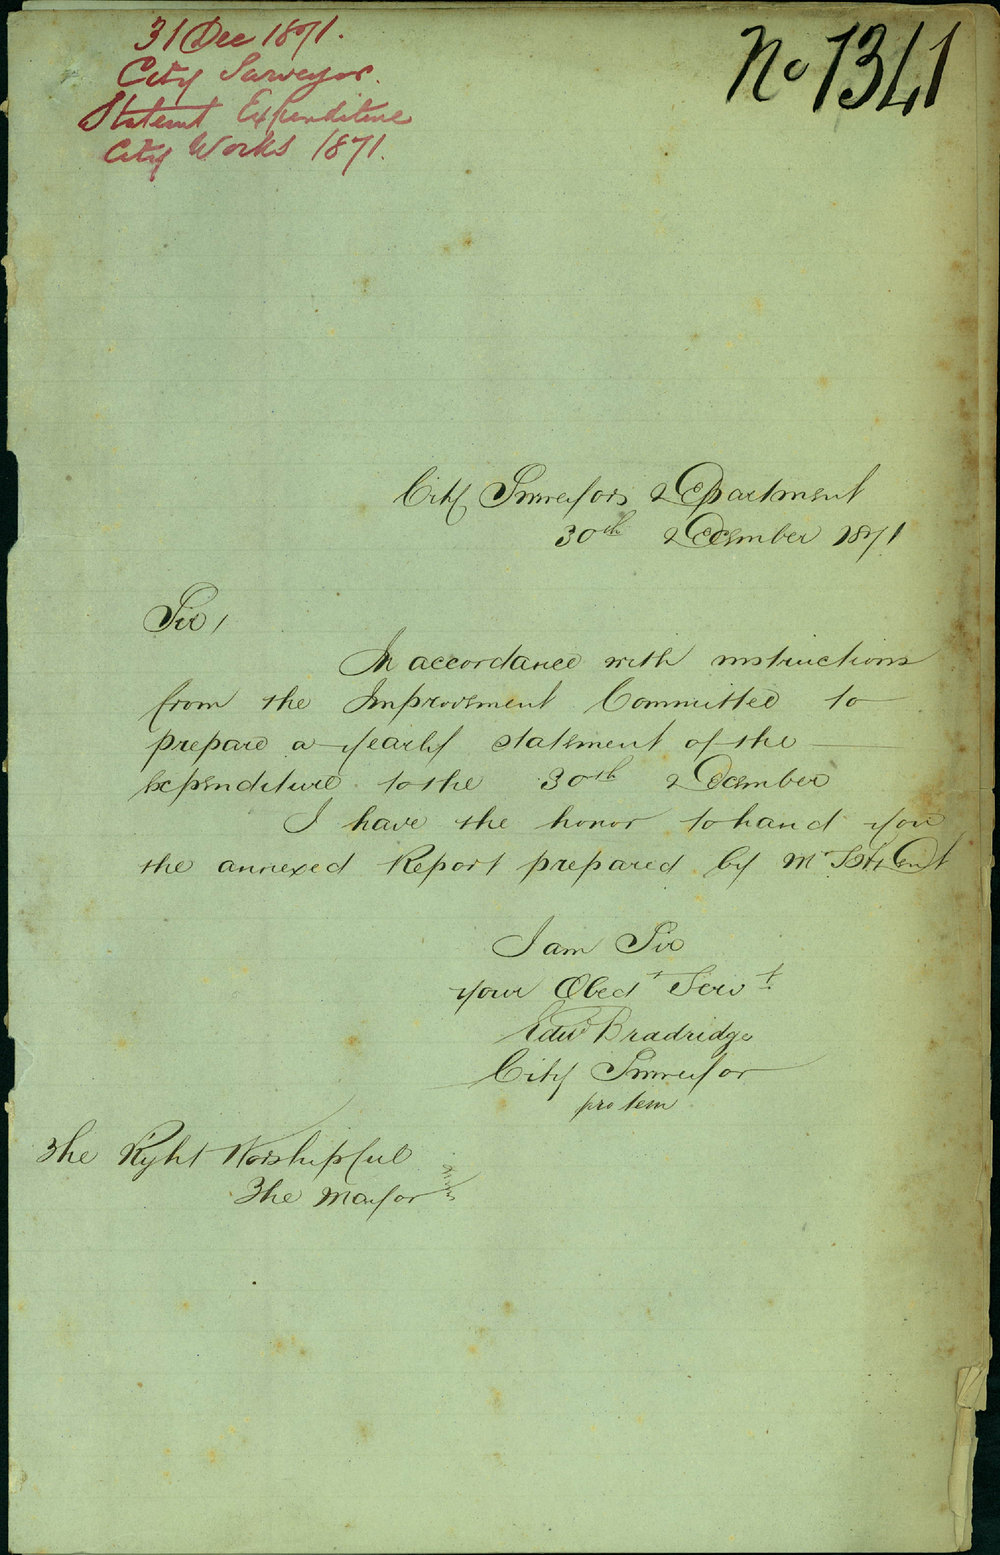 31 Dec 1871.
City Surveyor.
Statemt Expenditure
City Works 1871.
No 1341
City Surveyors Department
30th December 1871
Sir,
In accordance with instructions
from the Improvement Committee to
prepare a yearly statement of the
expenditure to the 30th December
I have the honor to hand you
the annexed Report prepared by Mr
I am Sir
your Obedt Servt
Edwd Bradridge
City Surveyor
pro tem
The Right Worshipful
The Mayor